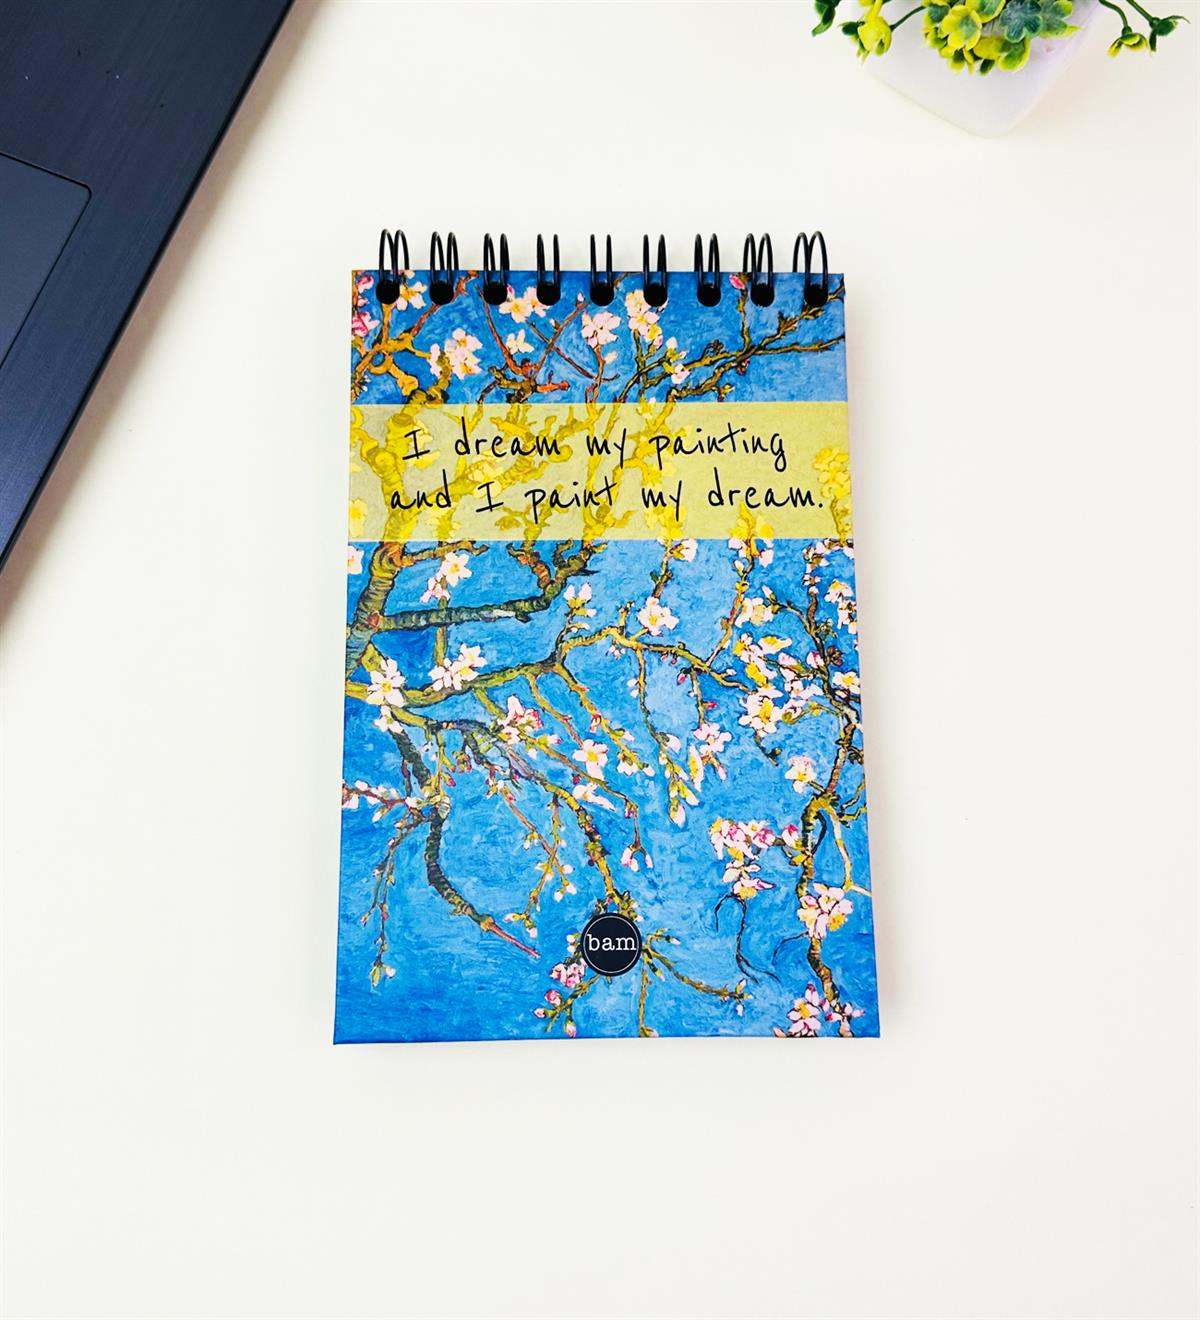 I dream my painting
and I paint my dream.
bam